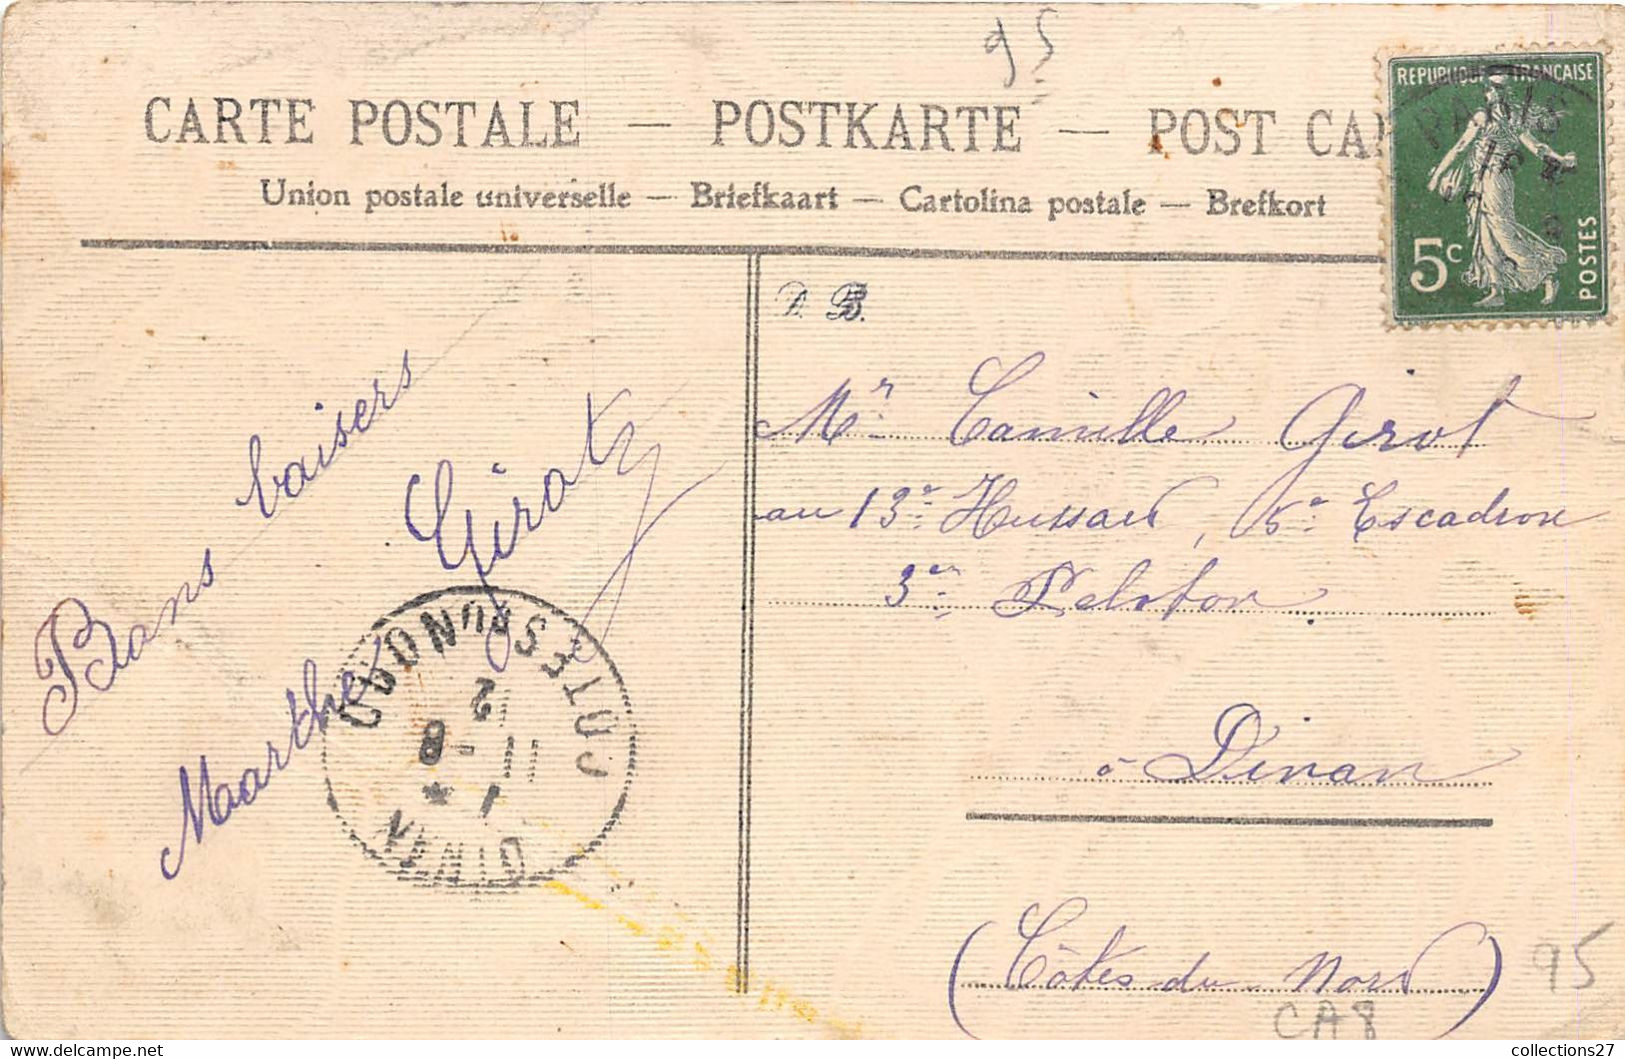 95
CARTE POSTALE — POSTKARTE — POST CA
Union postale universelle — Briefkaart — Cartolina postale — Brefkort
REPUBLIQUE FRANÇAISE
PARIS
5c
POSTES
D. B.
Mr. Camille Girot
au 13e Hussard, 5e Escadron
3e Peloton
à Dinan
(Côtes du Nord)
Bons baisers
Marthe Girot
DINAN
COTES DU NORD
95
CA8
collections27